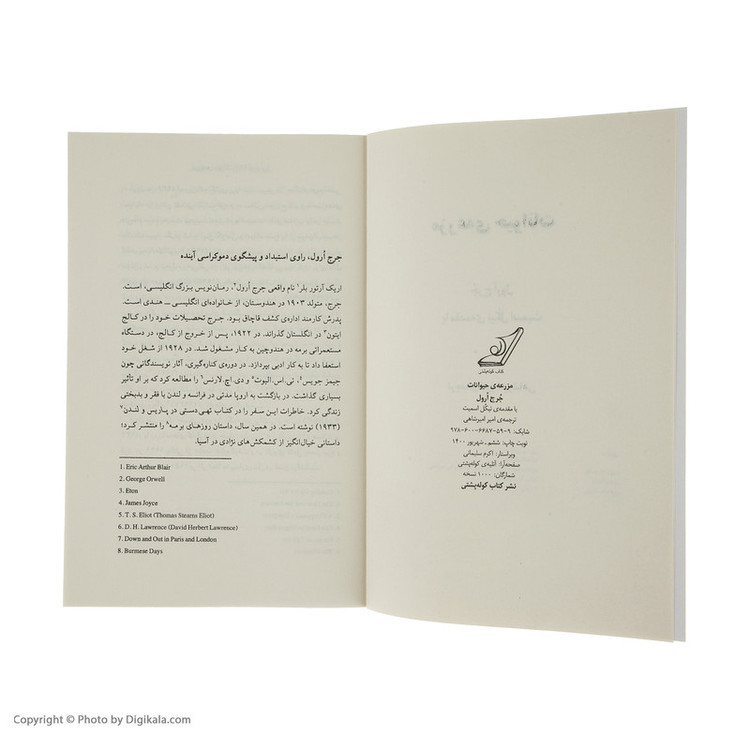 کتاب کوله‌پشتی
مزرعه‌ی حیوانات
جُرج اُرول
با مقدمه‌ی نیکُل اسمیت
ترجمه‌ی امیر امیرشاهی
شابک: ۹-۵۹-۶۶۸۷-۶۰۰-۹۷۸
نوبت چاپ: ششم ـ شهریور ۱۴۰۰
ویراستار: اکرم سلیمانی
صفحه‌آرا: آتلیه‌ی کوله‌پشتی
شمارگان: ۱۰۰۰ نسخه
نشر کتاب کوله‌پشتی
جرج اُرول، راوی استبداد و پیشگوی دموکراسی آینده
اریک آرتور بلر¹ نام واقعی جرج اُرول²، رمان‌نویس بزرگ انگلیسی، است.
جرج، متولد ۱۹۰۳ در هندوستان، از خانواده‌ای انگلیسی ــ هندی است.
پدرش کارمند اداره‌ی کشف قاچاق بود. جرج تحصیلات خود را در کالج
ایتون³ در انگلستان گذراند. در ۱۹۲۲، پس از خروج از کالج، در دستگاه
مستعمراتی برمه در هندوچین به کار مشغول شد. در ۱۹۲۸ از شغل خود
استعفا داد تا به کار ادبی بپردازد. در دوره‌ی کناره‌گیری، آثار نویسندگانی چون
جیمز جویس⁴، تی.اس.الیوت⁵ و دی.اچ.لارنس⁶ را مطالعه کرد که بر او تأثیر
بسیاری گذاشت. در بازگشت به اروپا مدتی در فرانسه و لندن با فقر و بدبختی
زندگی کرد. خاطرات این سفر را در کتاب تهی‌دستی در پاریس و لندن⁷
(۱۹۳۳) نوشته است. در همین سال، داستان روزهای برمه⁸ را منتشر کرد؛
داستانی خیال‌انگیز از کشمکش‌های نژادی در آسیا.
1. Eric Arthur Blair
2. George Orwell
3. Eton
4. James Joyce
5. T. S. Eliot (Thomas Stearns Eliot)
6. D. H. Lawrence (David Herbert Lawrence)
7. Down and Out in Paris and London
8. Burmese Days
Copyright © Photo by Digikala.com